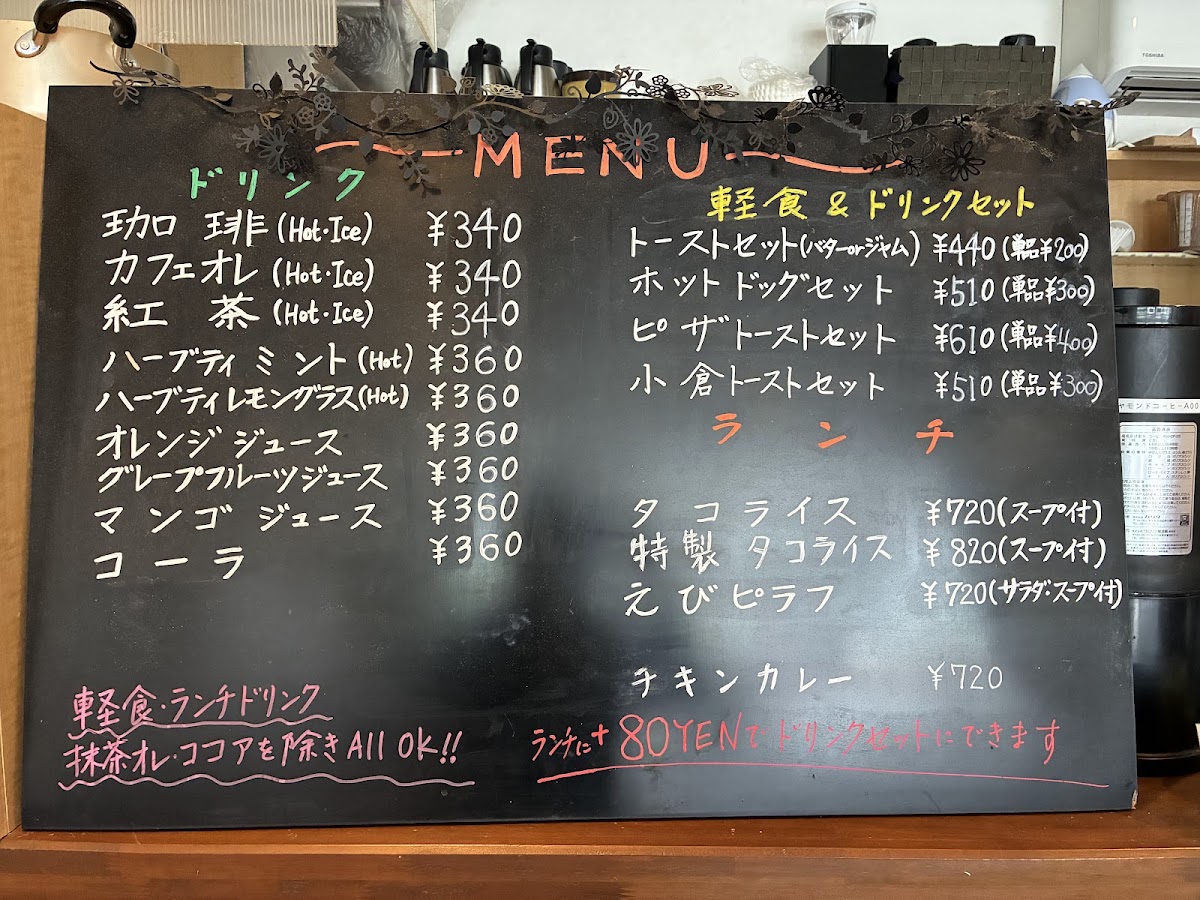 MENU
ドリンク
珈琲 (Hot・Ice) ¥340
カフェオレ (Hot・Ice) ¥340
紅茶 (Hot・Ice) ¥340
ハーブティ ミント (Hot) ¥360
ハーブティレモングラス(Hot) ¥360
オレンジジュース ¥360
グレープフルーツジュース ¥360
マンゴジュース ¥360
コーラ ¥360
軽食・ランチドリンク
抹茶オレ・ココアを除き All OK!!
軽食 & ドリンクセット
トーストセット(バターorジャム) ¥440 (単品¥200)
ホットドッグセット ¥510 (単品¥300)
ピザトーストセット ¥610 (単品¥400)
小倉トーストセット ¥510 (単品¥300)
ランチ
タコライス ¥720(スープ付)
特製タコライス ¥820(スープ付)
えびピラフ ¥720(サラダ・スープ付)
チキンカレー ¥720
ランチに+80YENでドリンクセットにできます
TOSHIBA
ヤモンドコーヒーA00